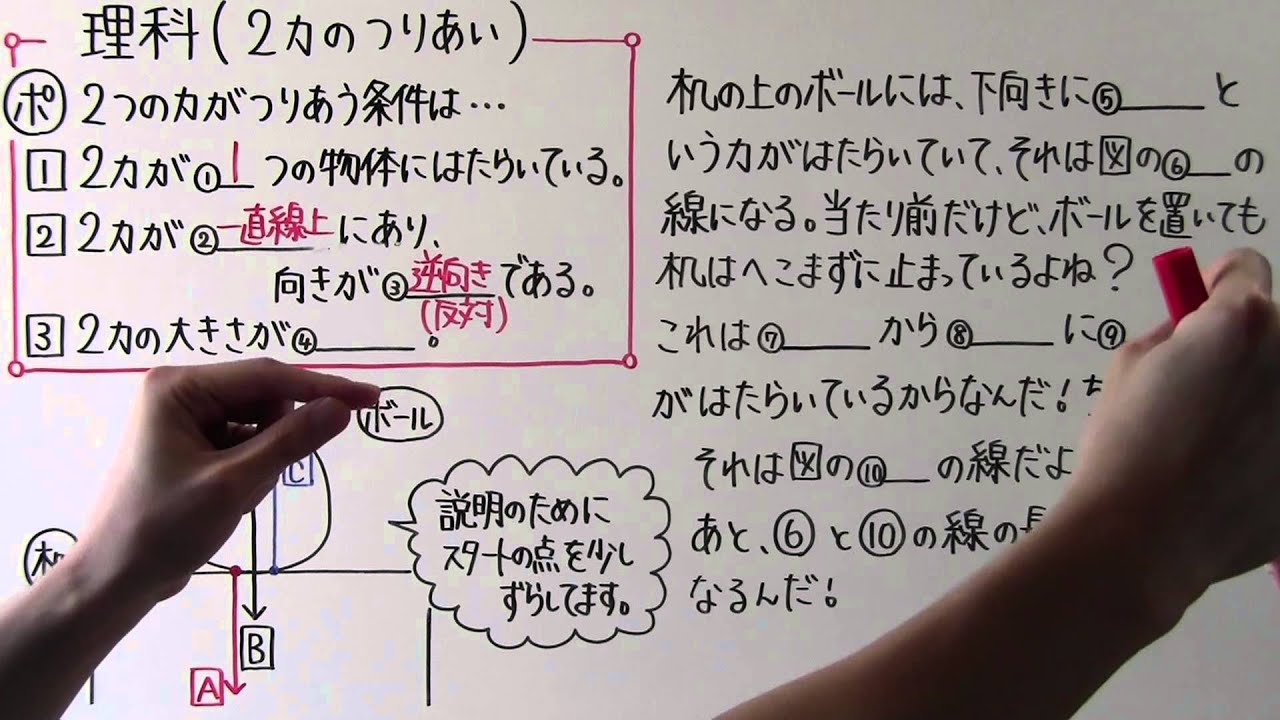 理科(2力のつりあい)
ポ 2つの力がつりあう条件は…
1 2力が①1つの物体にはたらいている。
2 2力が②一直線上にあり、
向きが③逆向きである。
(反対)
3 2力の大きさが④______。
ボール
机
C
B
A
説明のために
スタートの点を少し
ずらしてます。
机の上のボールには、下向きに⑤____と
いう力がはたらいていて、それは図の⑥__の
線になる。当たり前だけど、ボールを置いても
机はへこまずに止まっているよね?
これは⑦____から⑧____に⑨
がはたらいているからなんだ!
それは図の⑩__の線だよ
あと、⑥と⑩の線の
なるんだ!